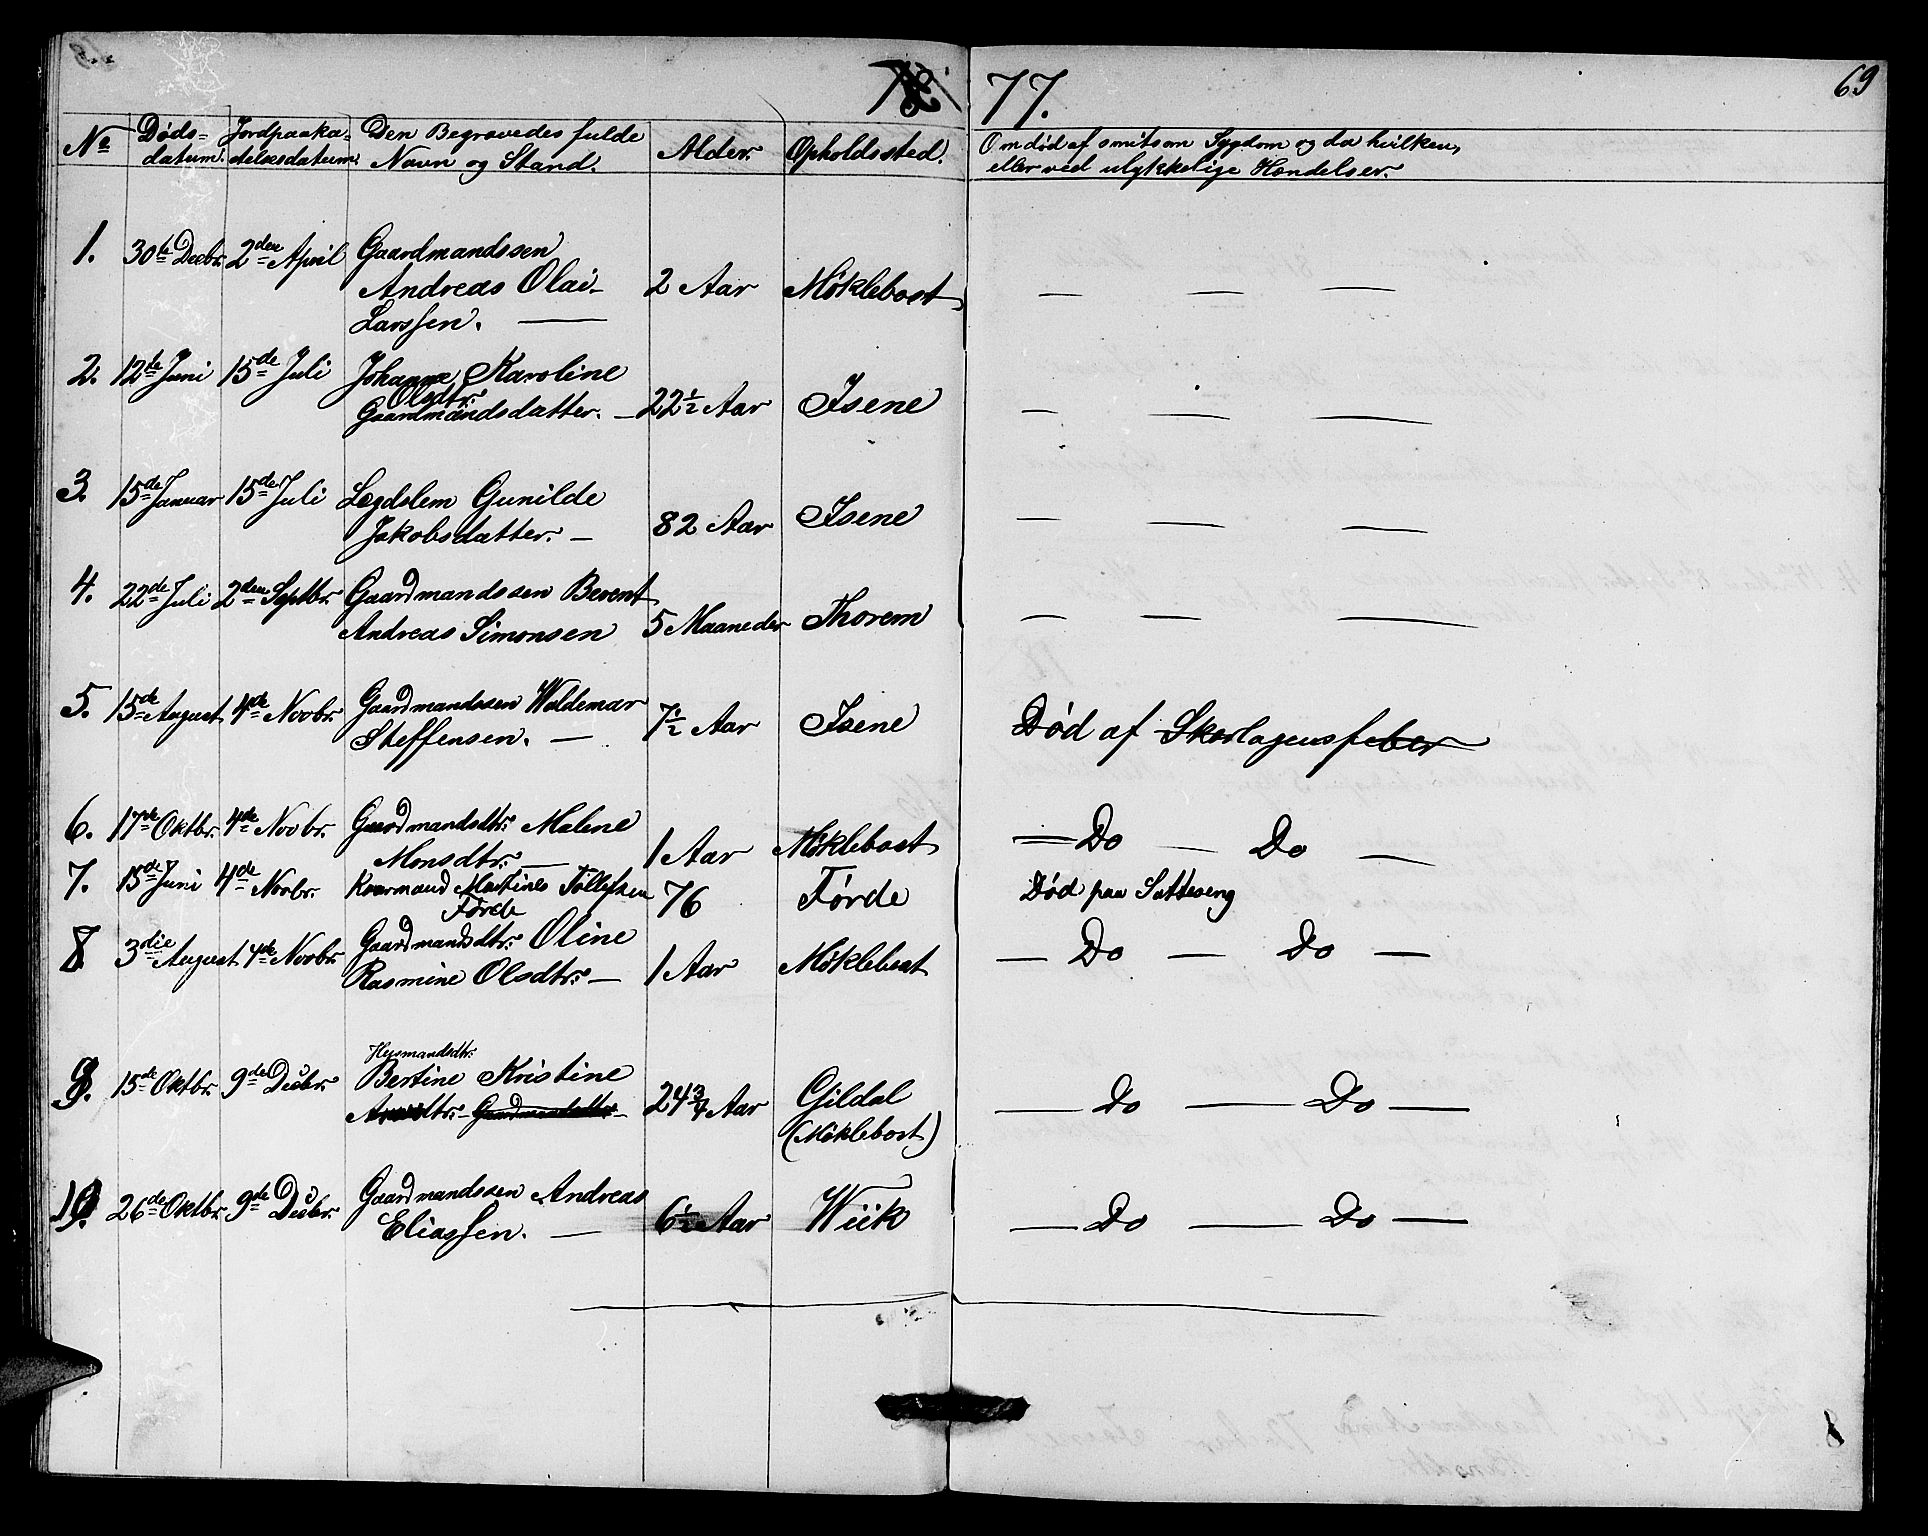 77.
69
No Døds- Jordpaaka- Den Begravedes fulde Alder. Opholdssted. Om død af smitsom Sygdom og da hvilken,
datum. stelsesdatum. Navn og Stand. eller ved ulykkelige Hændelser.
1. 30te Decbr. 2den April Gaardmandssen
Andreas Olai 2 Aar Möklebost — — —
Larssen. —
2. 12te Juni 15de Juli Johanne Karoline
Olsdtr.
Gaardmandsdatter. — 22½ Aar Isene — — —
3. 15de Januar 15de Juli Legdslem Gunilde
Jakobsdatter. — 82 Aar Isene — — —
4. 22de Juli 2den Septbr. Gaardmandssen Berent
Andreas Simonsen 5 Maaneder Thorem — — —
5. 15de August 4de Novbr. Gaardmandssen Waldemar
Steffensen. — 7½ Aar Isene Død af Skarlagensfeber
6. 17de Oktbr. 4de Novbr. Gaardmandsdtr. Malene
Monsdtr. — 1 Aar Möklebost — Do — Do —
7. 15de Juni 4de Novbr. Kaarmand Martines Tollefsen 76 Førde Død paa Sotteseng
Førde
8 3die August 4de Novbr. Gaardmandsdtr. Oline
Rasmine Olsdtr. — 1 Aar Möklebost — Do — Do —
Husmandsdtr.
9. 15de Oktbr. 9de Decbr. Bertine Kristine
24¾ Aar Gildal — Do — Do —
(Möklebost)
10. 26de Oktbr. 9de Decbr. Gaardmandssen Andreas
Eliassen. — 6½ Aar Wiik — Do — Do —